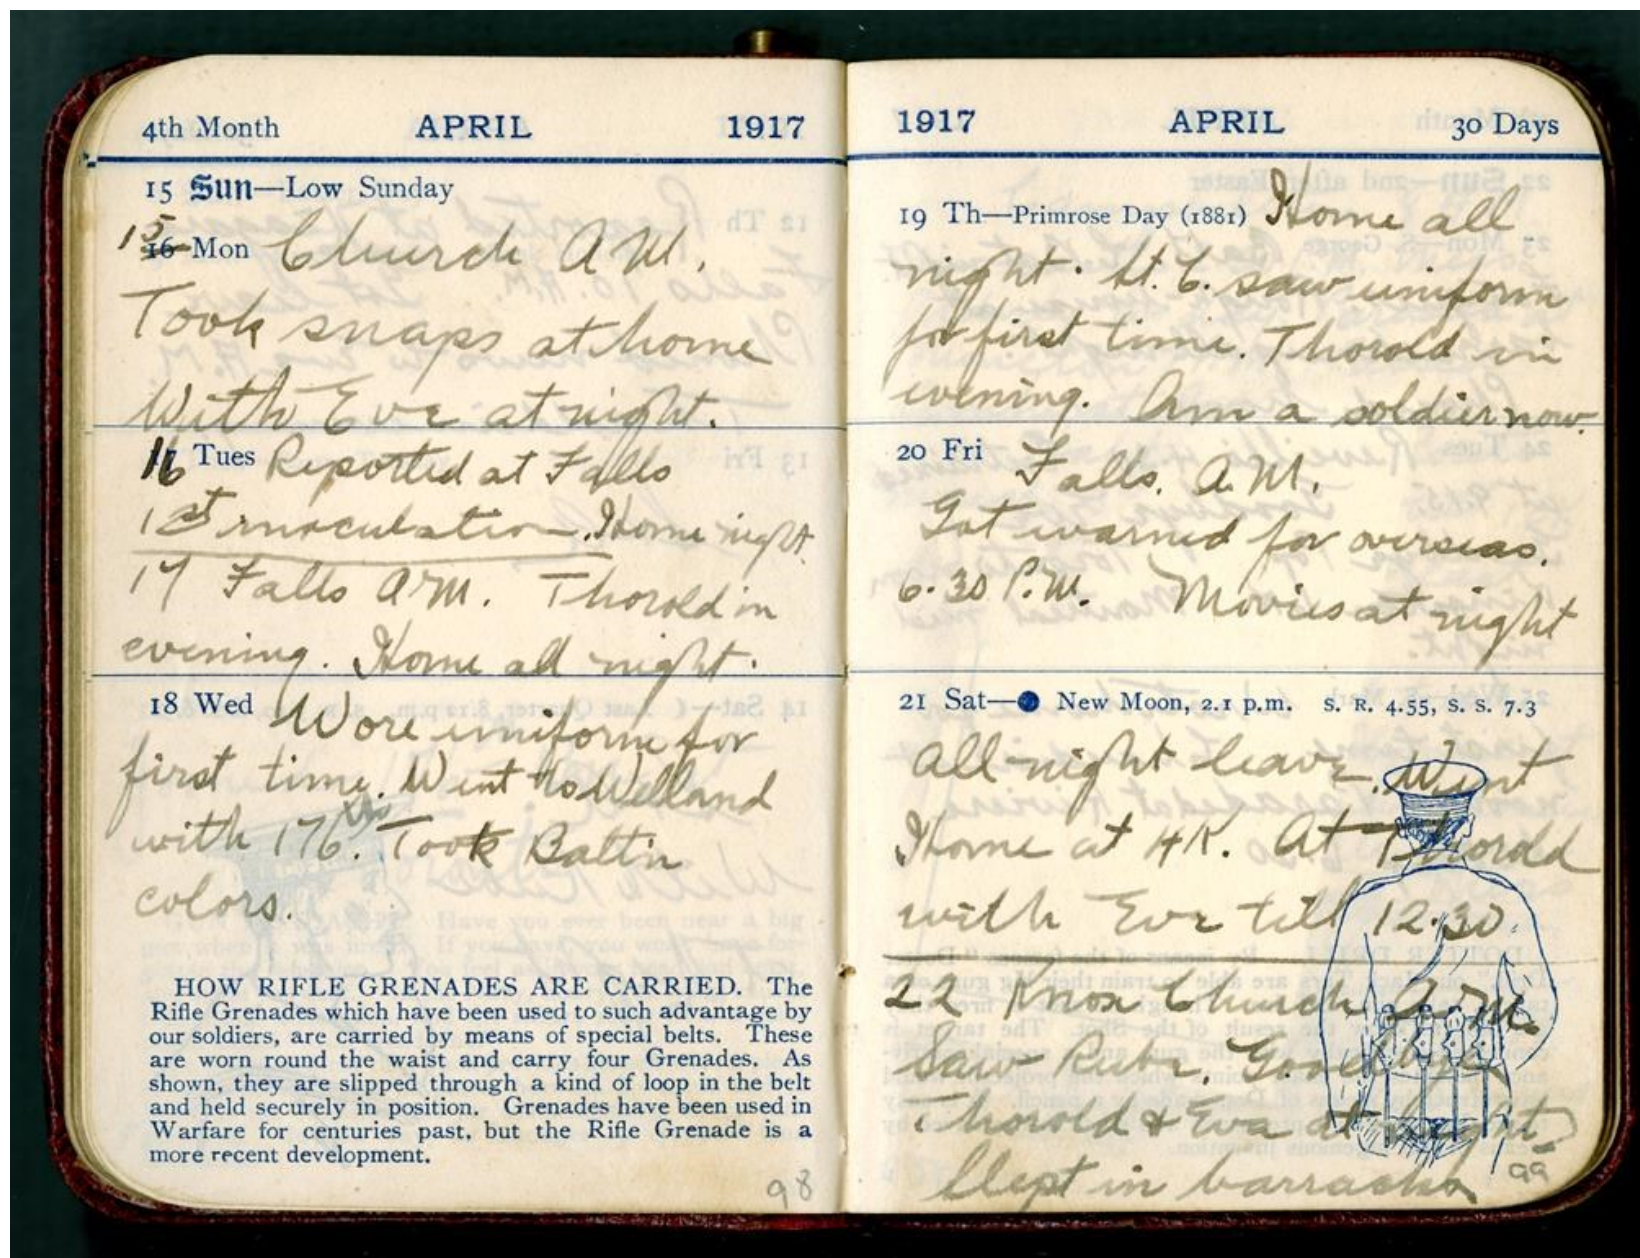 4th Month APRIL 1917
15 Sun—Low Sunday
15
16 Mon Church A.M.
Took snaps at home
With Eve at night.
16 Tues Reported at Falls
1st innoculation. Home night.
17 Falls A.M. Thorold in
evening. Home all night.
18 Wed Wore uniform for
first time. Went to Welland
with 176. Took Batt'n
colors.
HOW RIFLE GRENADES ARE CARRIED. The
Rifle Grenades which have been used to such advantage by
our soldiers, are carried by means of special belts. These
are worn round the waist and carry four Grenades. As
shown, they are slipped through a kind of loop in the belt
and held securely in position. Grenades have been used in
Warfare for centuries past, but the Rifle Grenade is a
more recent development.
98
1917 APRIL 30 Days
19 Th—Primrose Day (1881) Home all
night. St. C. saw uniform
for first time. Thorold in
evening. Am a soldier now.
20 Fri Falls. A.M.
Got warned for overseas.
6.30 P.M. Movies at night
21 Sat— New Moon, 2.1 p.m. S. R. 4.55, S. S. 7.3
All night leave. Went
Home at 4K. At Thorold
with Eve till 12.30.
22 Knox Church A.M.
Saw Rube. Goodbye
Thorold & Eva at night.
Slept in barracks
99